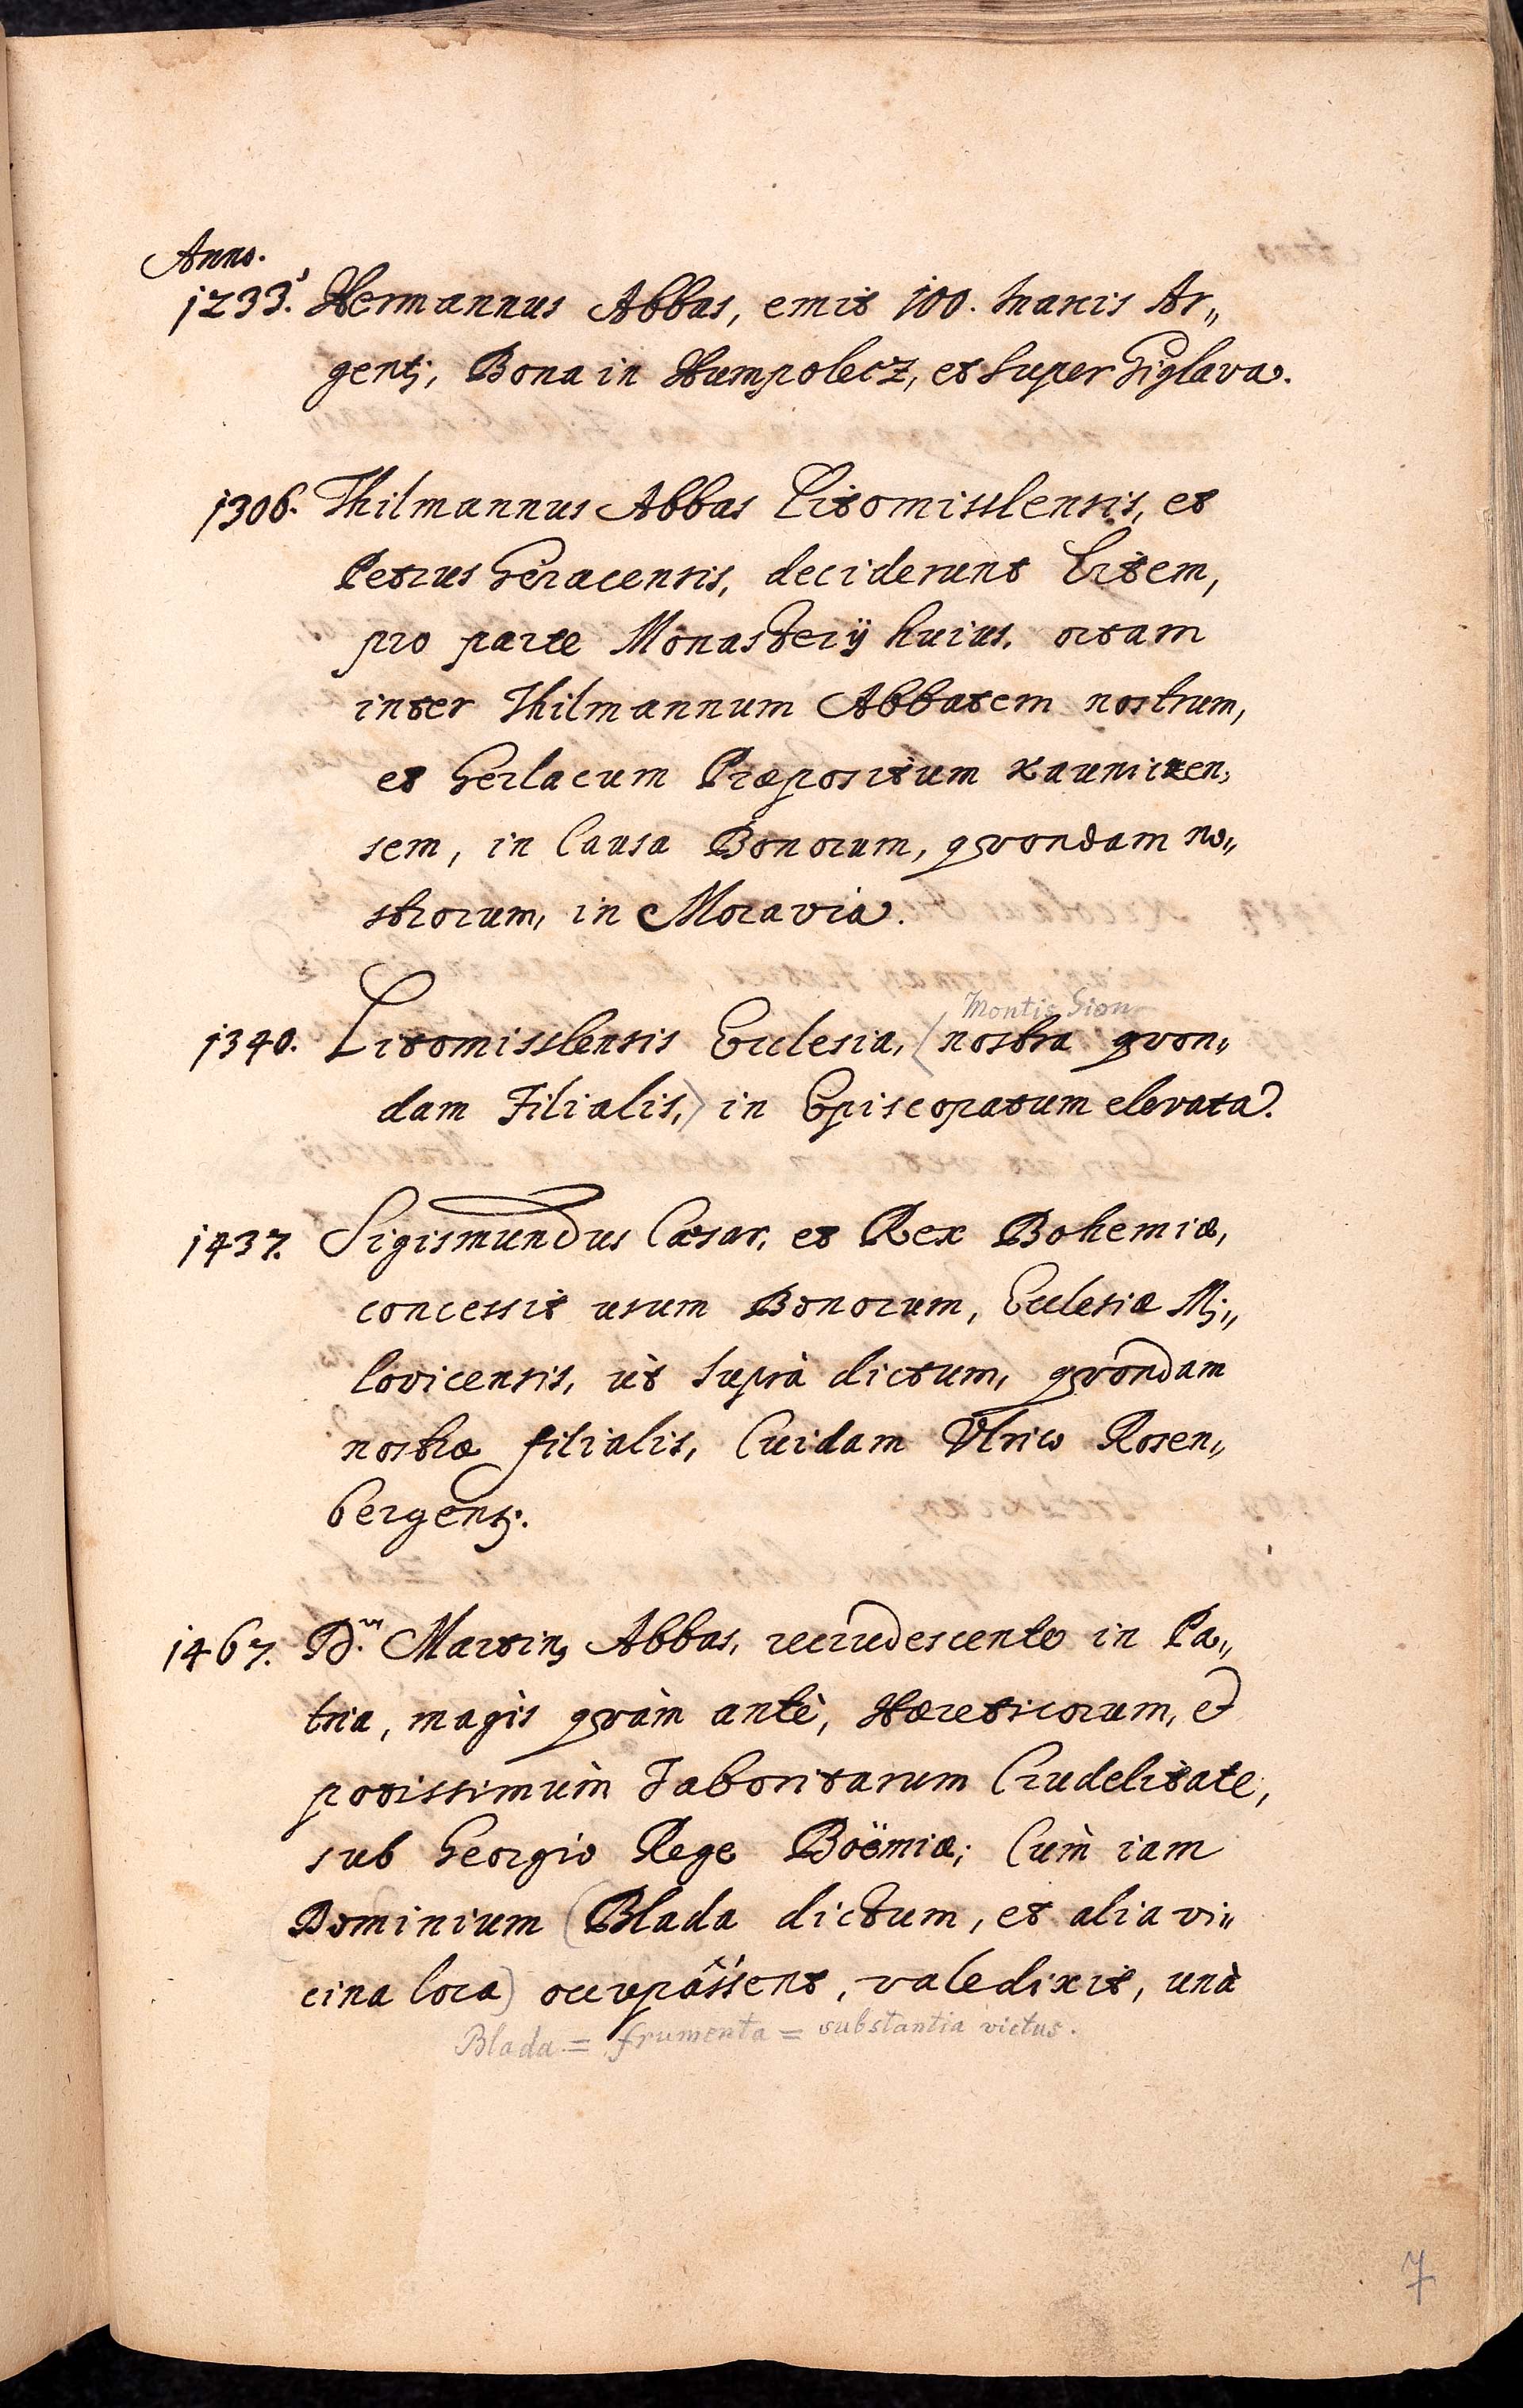 Anno.
1233. Hermannus Abbas, emit 100. Marcis Ar„
gentj, Bona in Humpolecz, et super Giglava.
1306. Thilmannus Abbas Litomisslensis, et
Petrus Geracensis, deciderunt Litem,
pro parte Monasterÿ huius, ortam
inter Thilmannum Abbatem nostrum,
et Gerlacum Præpositum Kaunicen„
sem, in Causa Bonorum, qvondam no„
strorum, in Moravia.
Montis Sion
1340. Litomisslensis Ecclesia, (nostra qvon„
dam Filialis,) in Episcopatum elevata.
1437. Sigismundus Cæsar, et Rex Bohemiæ,
concessit usum Bonorum, Ecclesiæ Mj„
lovicensis, ùt suprà dictum, qvondam
nostræ filialis, Cuidam Ulrico Rosen„
bergensj.
1467. Martin9 Abbas, recrudescente in Pa„
tria, magis qvàm antè, Hæreticorum, et
potissimùm Taboritarum Crudelitate,
sub Georgio Rege Boëmiæ; Cùm iam
Dominium (Blada dictum, et alia vi„
cina loca) occupâssent, valedixit, unà
Blada = frumenta = substantia victus.
7